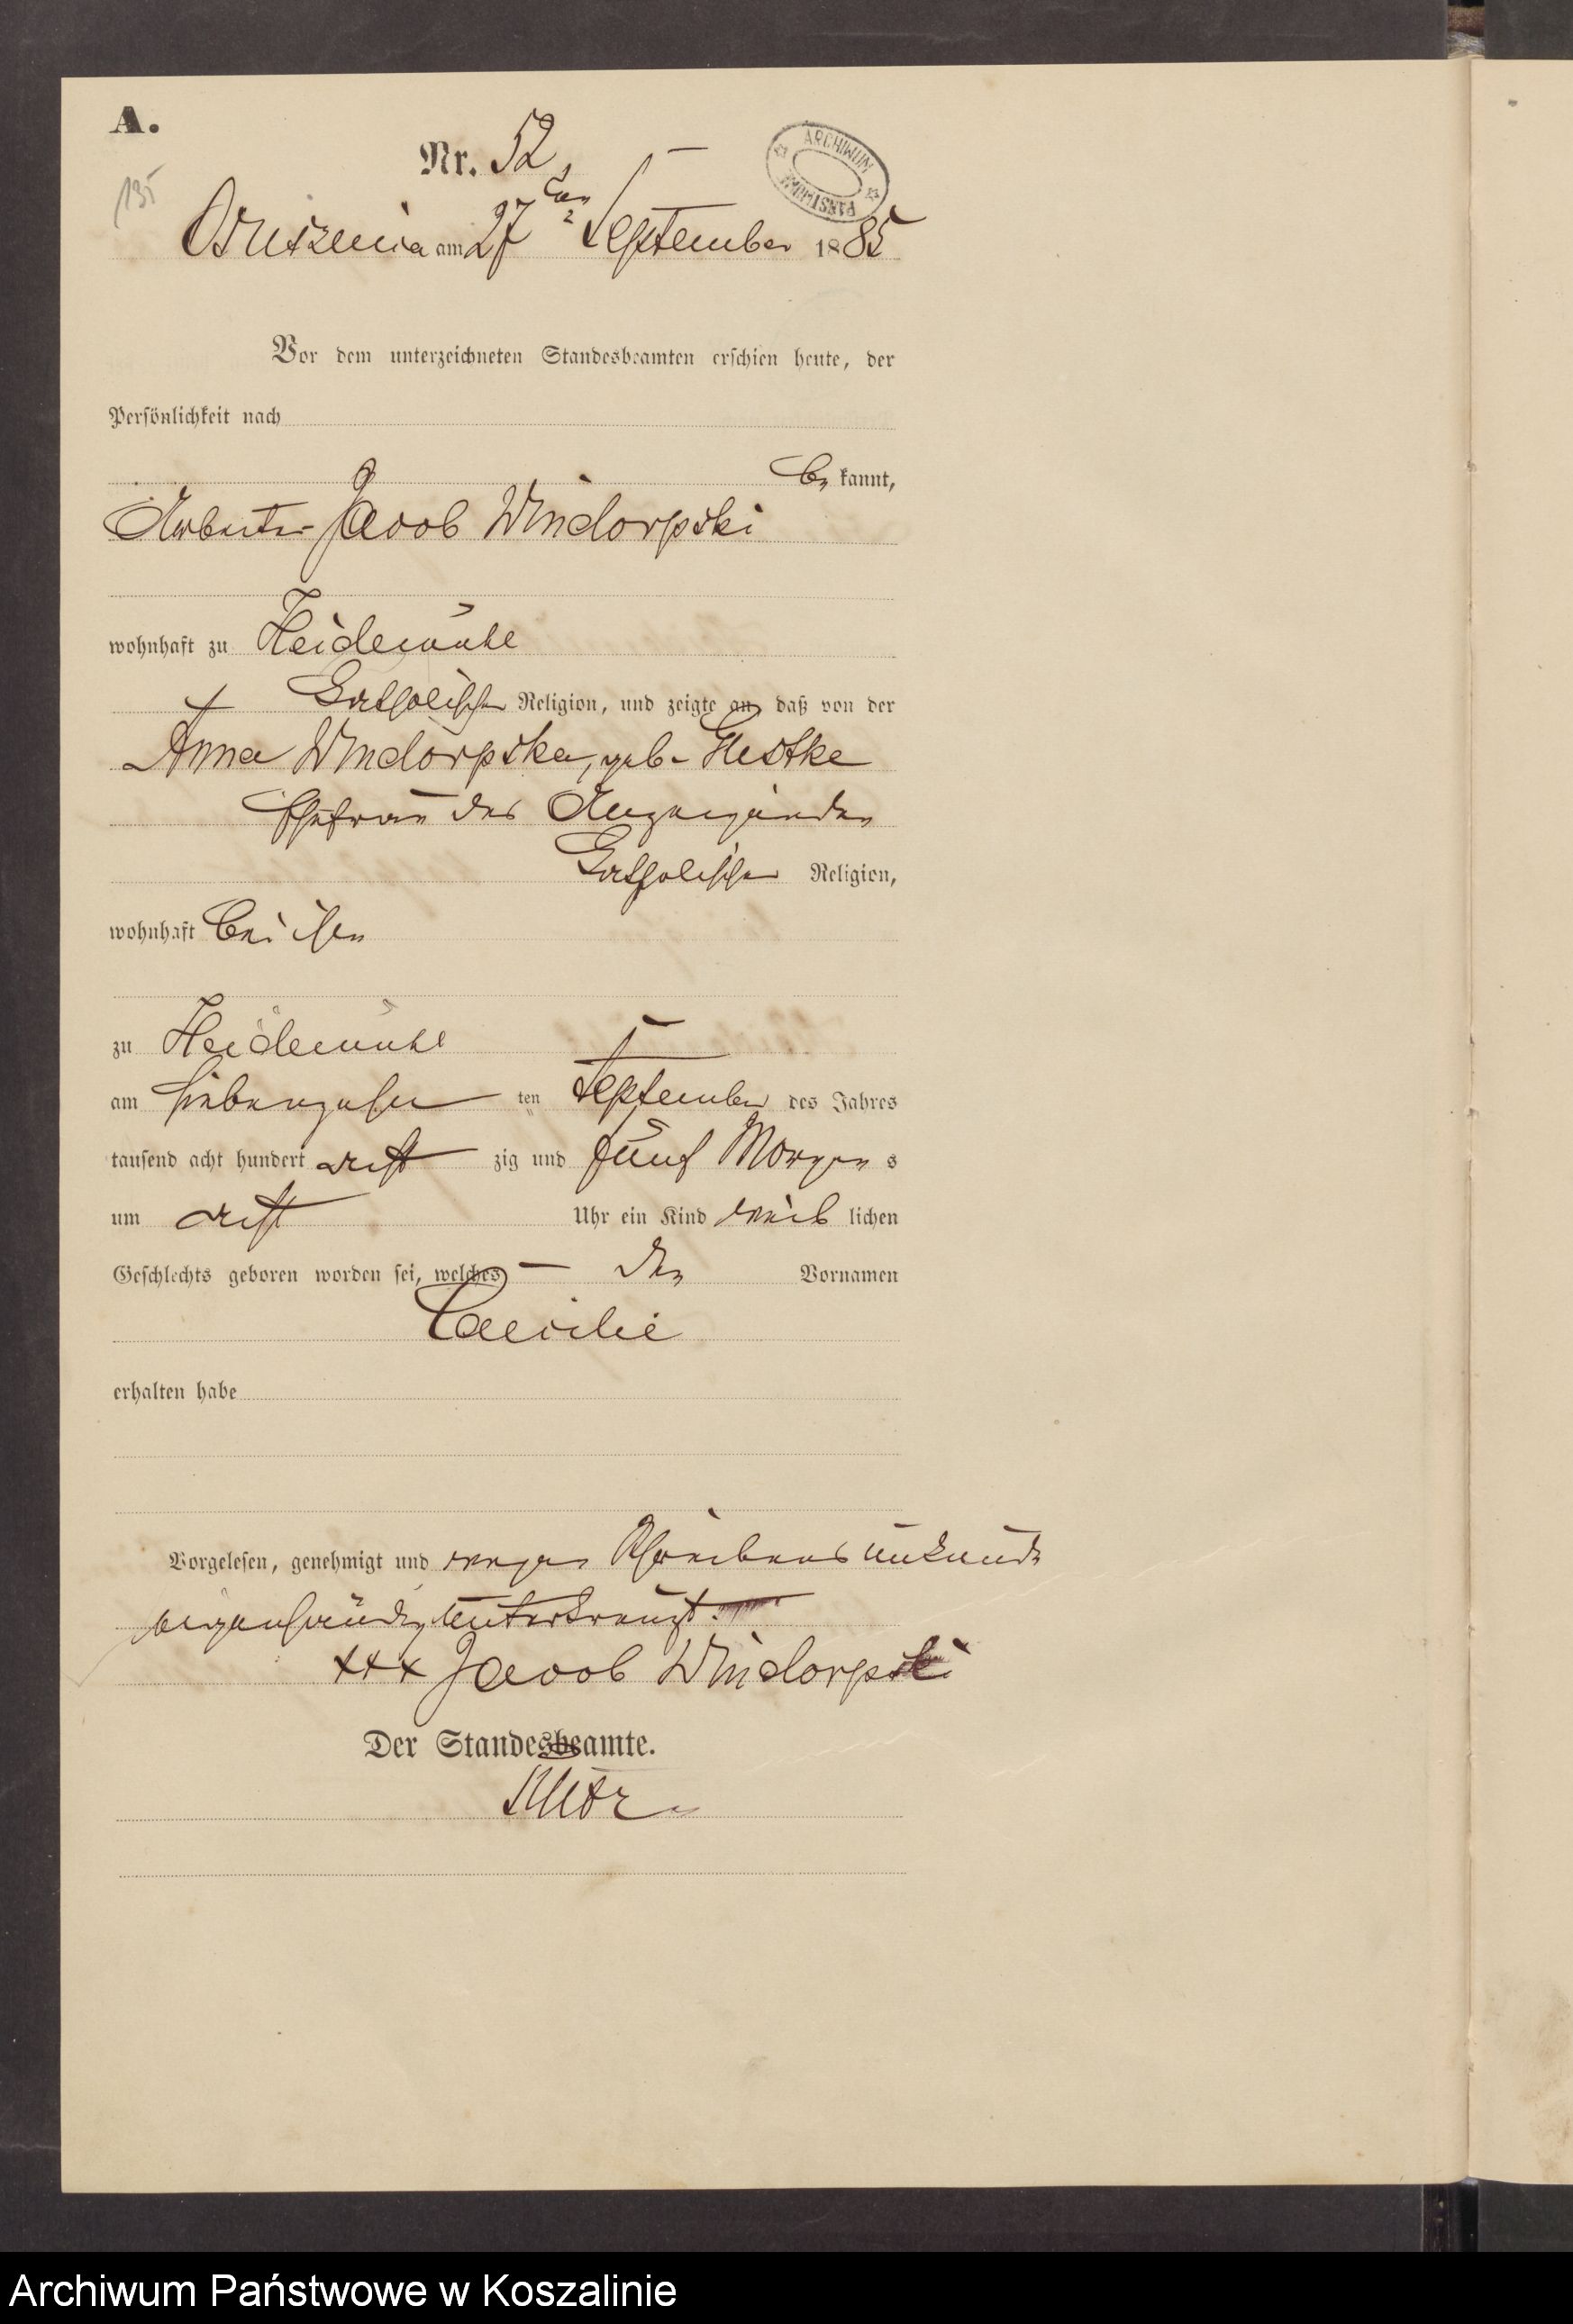 A.
Nr. 52
135
ARCHIWUM PAŃSTWOWE
Ossusznica am 27ten September 1885
Vor dem unterzeichneten Standesbeamten erschien heute, der
Persönlichkeit nach
be kannt,
Arbeiter Jacob Windorpski
wohnhaft zu Heidemühl
katholischer Religion, und zeigte an, daß von der
Anna Windorpska, geb. Gustke
Ehefrau des Anzeigenden
katholischer Religion,
wohnhaft bei ihm
zu Heidemühl
am siebenzehn ten September des Jahres
tausend acht hundert acht zig und fünf Morgens
um acht Uhr ein Kind weib lichen
Geschlechts geboren worden sei, welches den Vornamen
Caecilie
erhalten habe
Vorgelesen, genehmigt und wegen Schreibensunkunde
eigenhändig unterkreuzt.
+++ Jacob Windorpski
Der Standesbeamte.
Archiwum Państwowe w Koszalinie